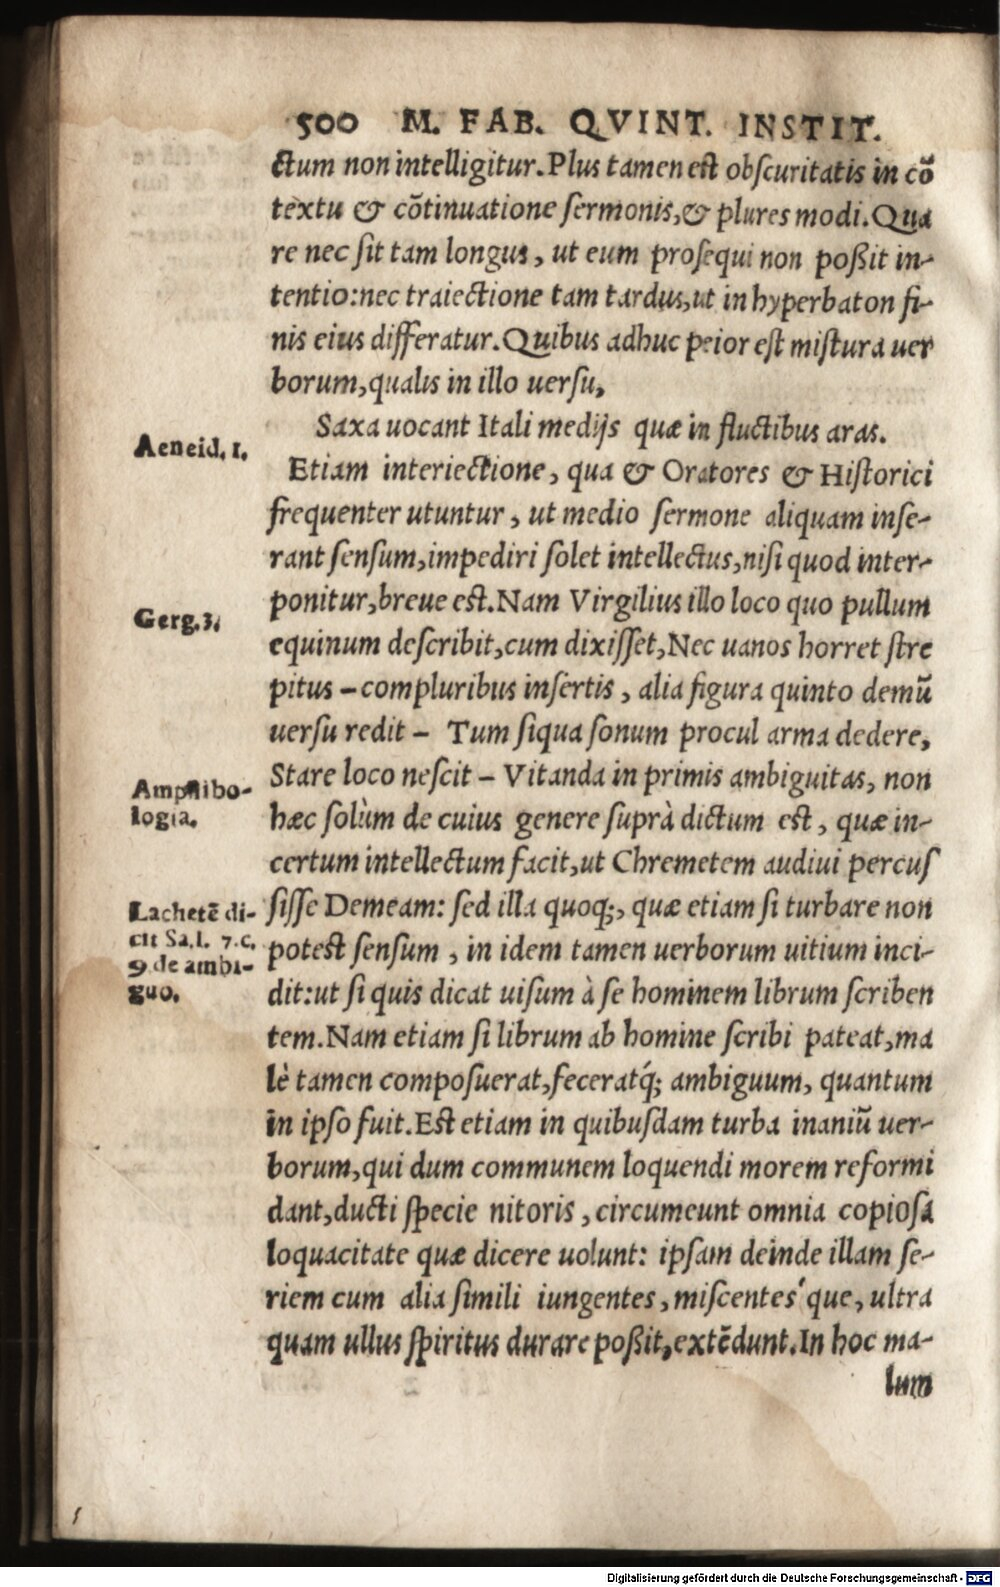 500 M. FAB. QVINT. INSTIT.
ctum non intelligitur. Plus tamen est obſcuritatis in cō
textu & cōtinuatione ſermonis, & plures modi. Qua
re nec ſit tam longus, ut eum proſequi non poßit in-
tentio: nec traiectione tam tardus, ut in hyperbaton fi-
nis eius differatur. Quibus adhuc peior eſt miſtura uer
borum, qualis in illo uerſu,
Saxa uocant Itali medijs quæ in fluctibus aras.
Aeneid. 1.
Etiam interiectione, qua & Oratores & Hiſtorici
frequenter utuntur, ut medio ſermone aliquam inſe-
rant ſenſum, impediri ſolet intellectus, niſi quod inter-
ponitur, breue est. Nam Virgilius illo loco quo pullum
Gerg. 3.
equinum deſcribit, cum dixiſſet, Nec uanos horret ſtre
pitus – compluribus inſertis, alia figura quinto demū
uerſu redit – Tum ſiqua ſonum procul arma dedere,
Stare loco neſcit – Vitanda in primis ambiguitas, non
Amphibo-
logia.
hæc ſolùm de cuius genere ſuprà dictum est, quæ in-
certum intellectum facit, ut Chremetem audiui percuſ
ſiſſe Demeam: ſed illa quoq;, quæ etiam ſi turbare non
Lachetē di-
cit Sa. l. 7. c.
9 de ambi-
guo.
potest ſenſum, in idem tamen uerborum uitium inci-
dit: ut ſi quis dicat uiſum à ſe hominem librum ſcriben
tem. Nam etiam ſi librum ab homine ſcribi pateat, ma
lè tamen compoſuerat, feceratq́; ambiguum, quantum
in ipſo fuit. Est etiam in quibuſdam turba inaniū uer-
borum, qui dum communem loquendi morem reformi
dant, ducti ſpecie nitoris, circumeunt omnia copioſa
loquacitate quæ dicere uolunt: ipſam deinde illam ſe-
riem cum alia ſimili iungentes, miſcentes´que, ultra
quam ullus ſpiritus durare poßit, extēdunt. In hoc ma-
lum
Digitalisierung gefördert durch die Deutsche Forschungsgemeinschaft - DFG